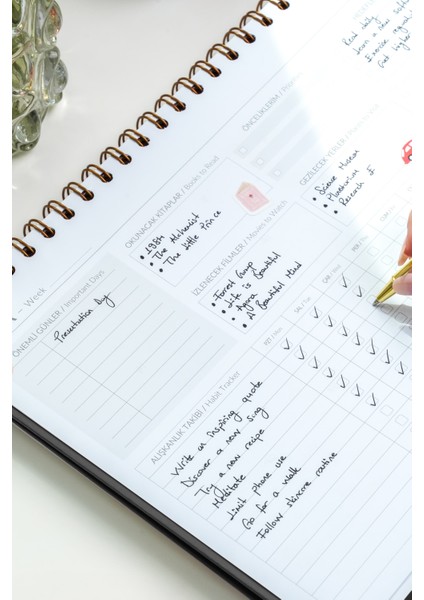 Read daily
ÖNCELİKLERİM
OKUNACAK KİTAPLAR / Books to Read
• 1984
• The Alchemist
• The Little Prince
GEZİLECEK YERLER
• Science Museum
• Planetarium
İZLENECEK FİLMLER / Movies to Watch
• Forrest Gump
• Life is Beautiful
• Agora
• A Beautiful Mind
- Week
ÖNEMLİ GÜNLER / Important Days
Presentation Day
ALIŞKANLIK TAKİBİ / Habit Tracker
PZT / Mon
SAL / Tue
Write an inspiring quote
Discover a new song
Try a new recipe
Meditate
Limit phone use
Go for a walk
Follow skincare routine